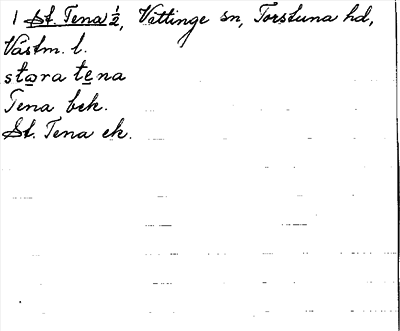 1 St. Tena ½, Vittinge sn, Torstuna hd,
Västm. l.
stora tena
Tena bek.
St. Tena ek.